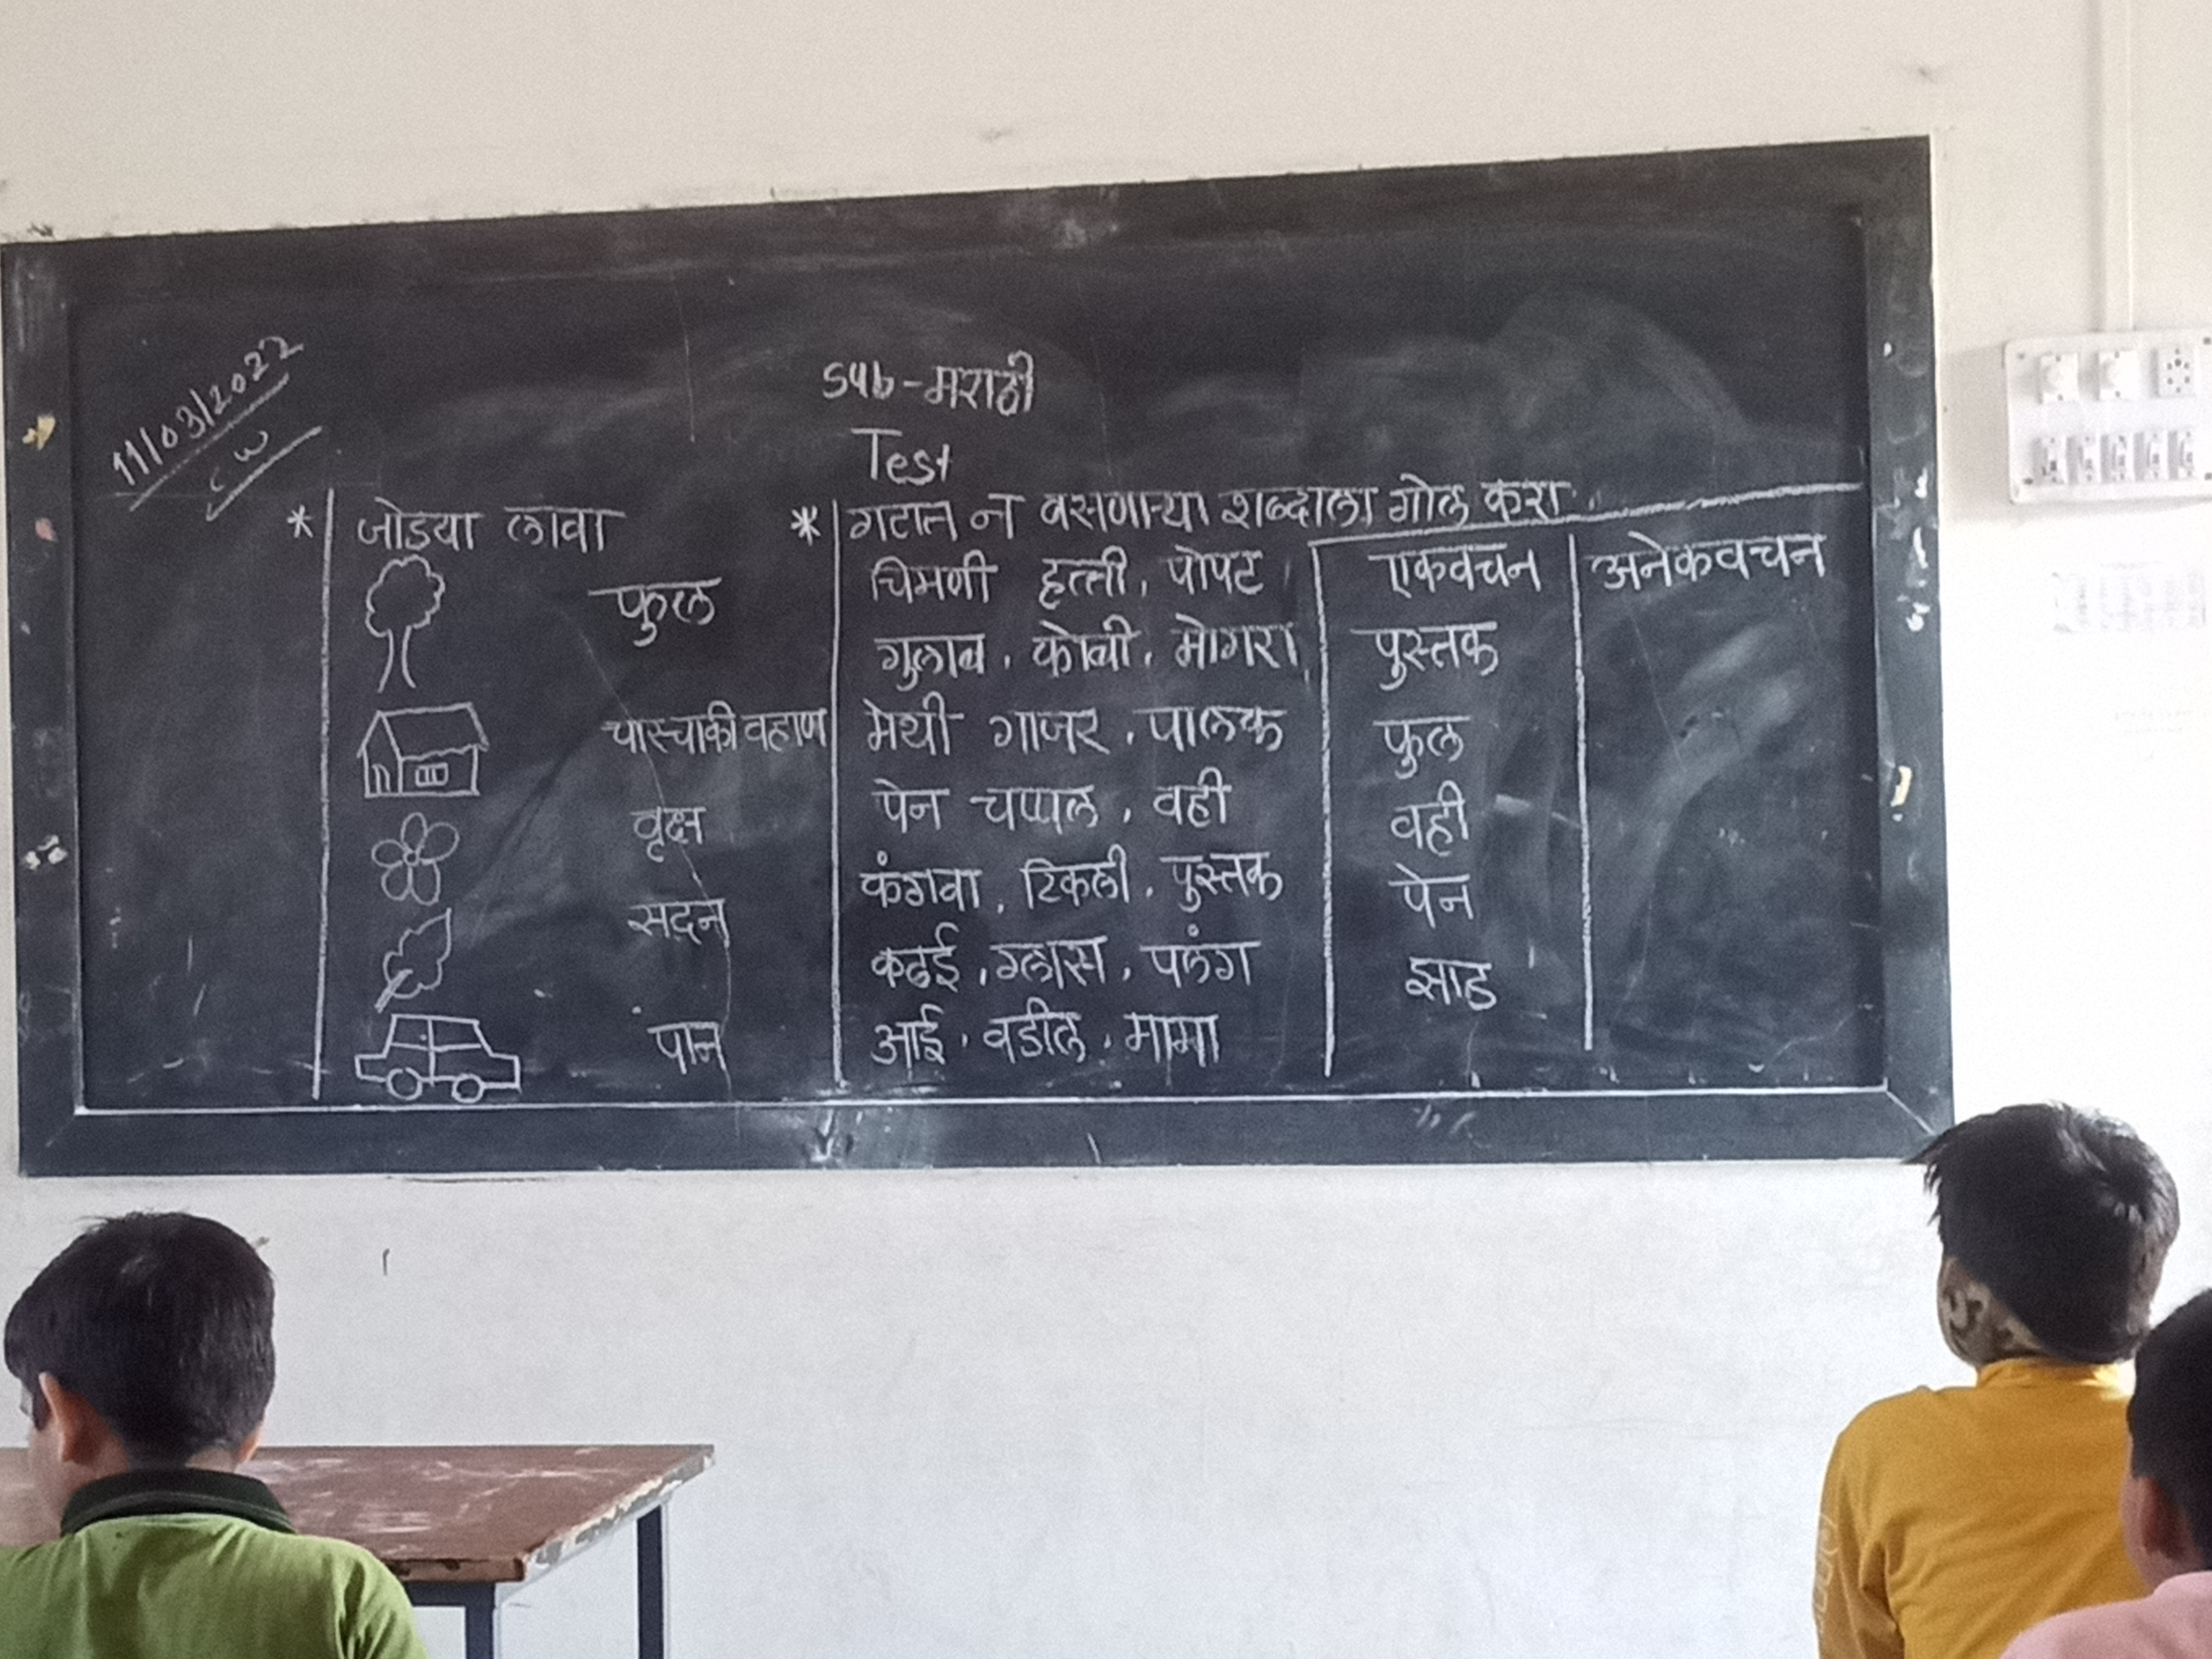 11/03/2022
CW
Sub-मराठी
Test
* जोडया लावा
फुल
चारचाकी वहाण
वृक्ष
सदन
पान
* गटात न बसणाऱ्या शब्दाला गोल करा.
चिमणी हत्ती, पोपट
गुलाब, कोबी, मोगरा,
मेथी गाजर, पालक
पेन चप्पल, वही
कंगवा, टिकली, पुस्तक
कढई, ग्लास, पलंग
आई, वडील, मामा
एकवचन अनेकवचन
पुस्तक
फुल
वही
पेन
झाड